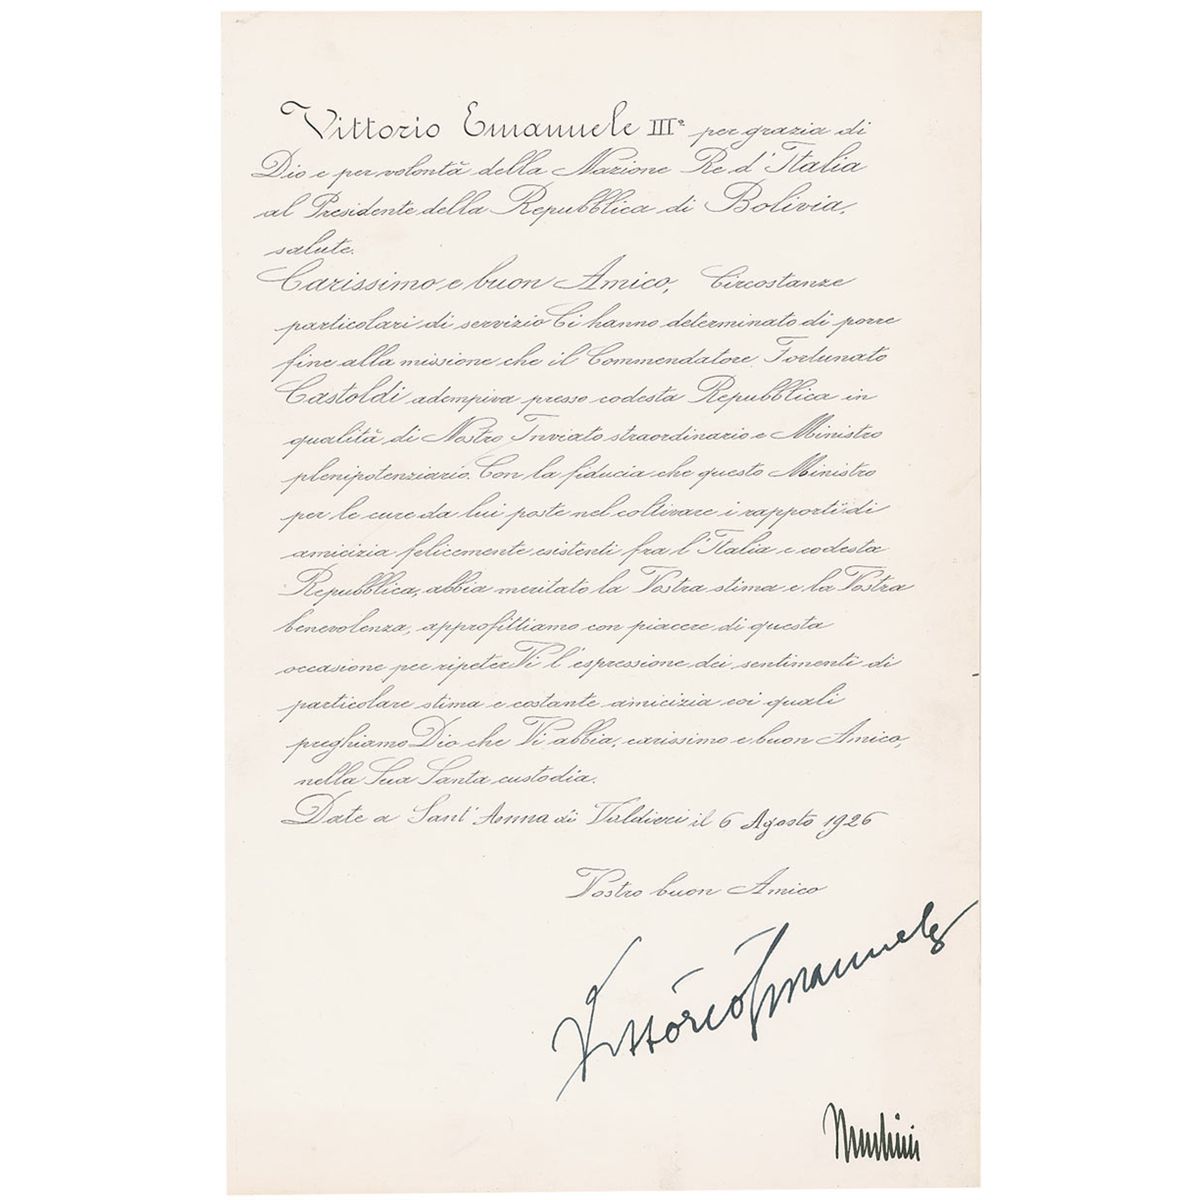 Vittorio Emanuele IIIº per grazia di
Dio e per volontà della Nazione Re d'Italia
al Presidente della Repubblica di Bolivia,
salute.
Carissimo e buon Amico, Circostanze
particolari di servizio Ci hanno determinato di porre
fine alla missione che il Commendatore Fortunato
Castoldi adempiva presso codesta Repubblica in
qualità di Nostro Inviato straordinario e Ministro
plenipotenziario. Con la fiducia che questo Ministro
per le cure da lui poste nel coltivare i rapporti di
amicizia felicemente esistenti fra l'Italia e codesta
Repubblica, abbia meritato la Vostra stima e la Vostra
benevolenza, approfittiamo con piacere di questa
occasione per ripeterVi l'espressione dei sentimenti di
particolare stima e costante amicizia coi quali
preghiamo Dio che Vi abbia, carissimo e buon Amico,
nella Sua Santa custodia.
Date a Sant'Anna di Valdieri il 6 Agosto 1926
Vostro buon Amico
Vittorio Emanuele
Mussolini